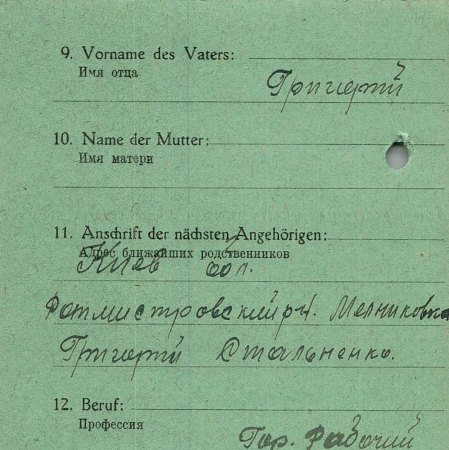 9. Vorname des Vaters:
Имя отца
Григорий
10. Name der Mutter:
Имя матери
11. Anschrift der nächsten Angehörigen:
Адрес ближайших родственников
Киев обл.
Ротмистровский рн. Мелниковка
Григорий Стальненко.
12. Beruf:
Профессия
Гор. Рабочий